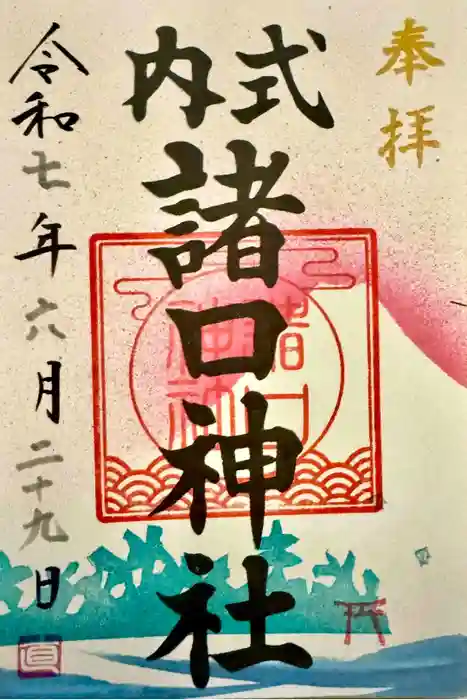 奉拝
式内
諸口神社
令和七年六月二十九日